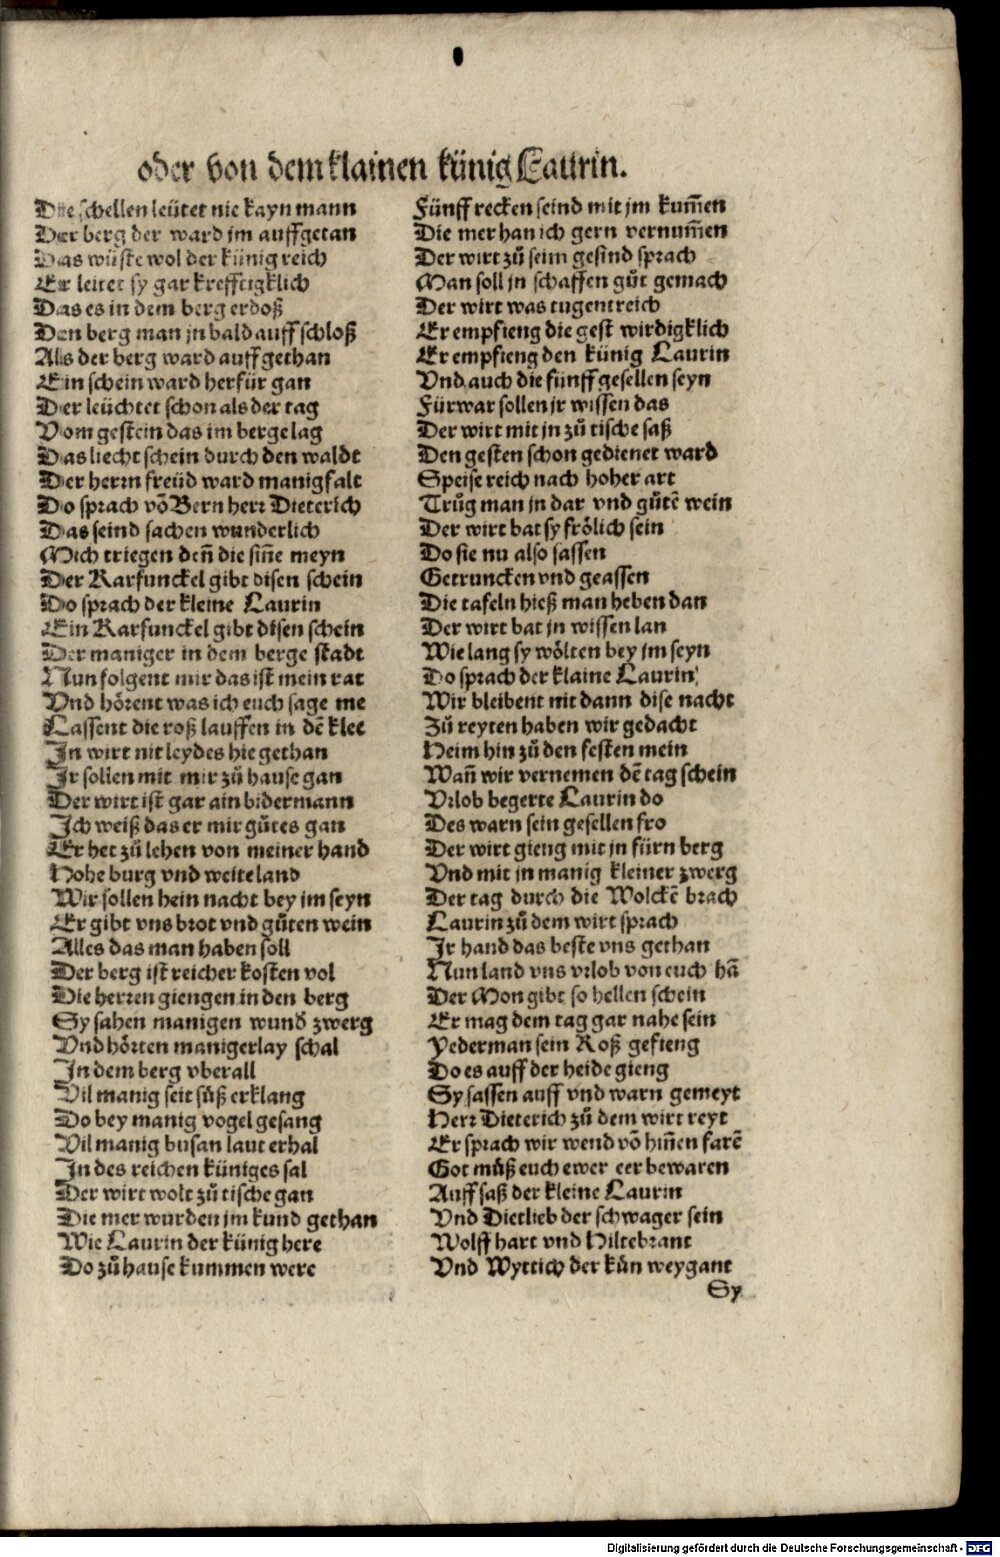 oder von dem klainen künig Laurin.
Die schellen leütet nie kayn mann
Der berg der ward jm auffgetan
Das wüste wol der künig reich
Er leitet sy gar krefftigklich
Das es in dem berg erdoß
Den berg man jn bald auff schloß
Als der berg ward auff gethan
Ein schein ward herfür gan
Der leüchtet schon als der tag
Vom gestein das im berge lag
Das liecht schein durch den waldt
Der herrn freüd ward manigfalt
Do sprach võ Bern herr Dieterich
Das seind sachen wunderlich
Mich triegen deñ die siñe meyn
Der Karfunckel gibt disen schein
Do sprach der kleine Laurin
Ein Karfunckel gibt disen schein
Der maniger in dem berge stadt
Nun folgent mir das ist mein rat
Vnd hörent was ich euch sage me
Lassent die roß lauffen in dẽ klee
In wirt nit leydes hie gethan
Ir sollen mit mir zů hause gan
Der wirt ist gar ain bidermann
Ich weiß das er mir gůtes gan
Er het zů lehen von meiner hand
Hohe burg vnd weite land
Wir sollen hein nacht bey jm seyn
Er gibt vns brot vnd gůten wein
Alles das man haben soll
Der berg ist reicher kosten vol
Die herren giengen in den berg
Sy sahen manigen wund̕ zwerg
Vnd hörten manigerlay schal
In dem berg vberall
Vil manig seit süß erklang
Do bey manig vogel gesang
Vil manig busan laut erhal
In des reichen küniges sal
Der wirt wolt zů tische gan
Die mer wurden jm kund gethan
Wie Laurin der künig here
Do zů hause kummen were
Fünff recken seind mit jm kum̃en
Die mer han ich gern vernum̃en
Der wirt zů seim gesind sprach
Man soll jn schaffen gůt gemach
Der wirt was tugentreich
Er empfieng die gest wirdigklich
Er empfieng den künig Laurin
Vnd auch die fünff gesellen seyn
Fürwar sollen jr wissen das
Der wirt mit jn zů tische saß
Den gesten schon gedienet ward
Speise reich nach hoher art
Trůg man jn dar vnd gůtẽ wein
Der wirt bat sy frölich sein
Do sie nu also sassen
Getruncken vnd geassen
Die tafeln hieß man heben dan
Der wirt bat jn wissen lan
Wie lang sy wölten bey jm seyn
Do sprach der klaine Laurin
Wir bleibent nit dann dise nacht
Zů reyten haben wir gedacht
Heim hin zů den festen mein
Wañ wir vernemen dẽ tag schein
Vrlob begerte Laurin do
Des warn sein gesellen fro
Der wirt gieng mit jn fürn berg
Vnd mit jn manig kleiner zwerg
Der tag durch die Wolckẽ brach
Laurin zů dem wirt sprach
Ir hand das beste vns gethan
Nun land vns vrlob von euch hã
Der Mon gibt so hellen schein
Er mag dem tag gar nahe sein
Yederman sein Roß gefieng
Do es auff der heide gieng
Sy sassen auff vnd warn gemeyt
Herr Dieterich zů dem wirt reyt
Er sprach wir wend võ hiñen farẽ
Got můß euch ewer eer bewaren
Auff saß der kleine Laurin
Vnd Dietlieb der schwager sein
Wolff hart vnd Hiltebrant
Vnd Wyttich der kůn weygant
Sy
Digitalisierung gefördert durch die Deutsche Forschungsgemeinschaft - DFG